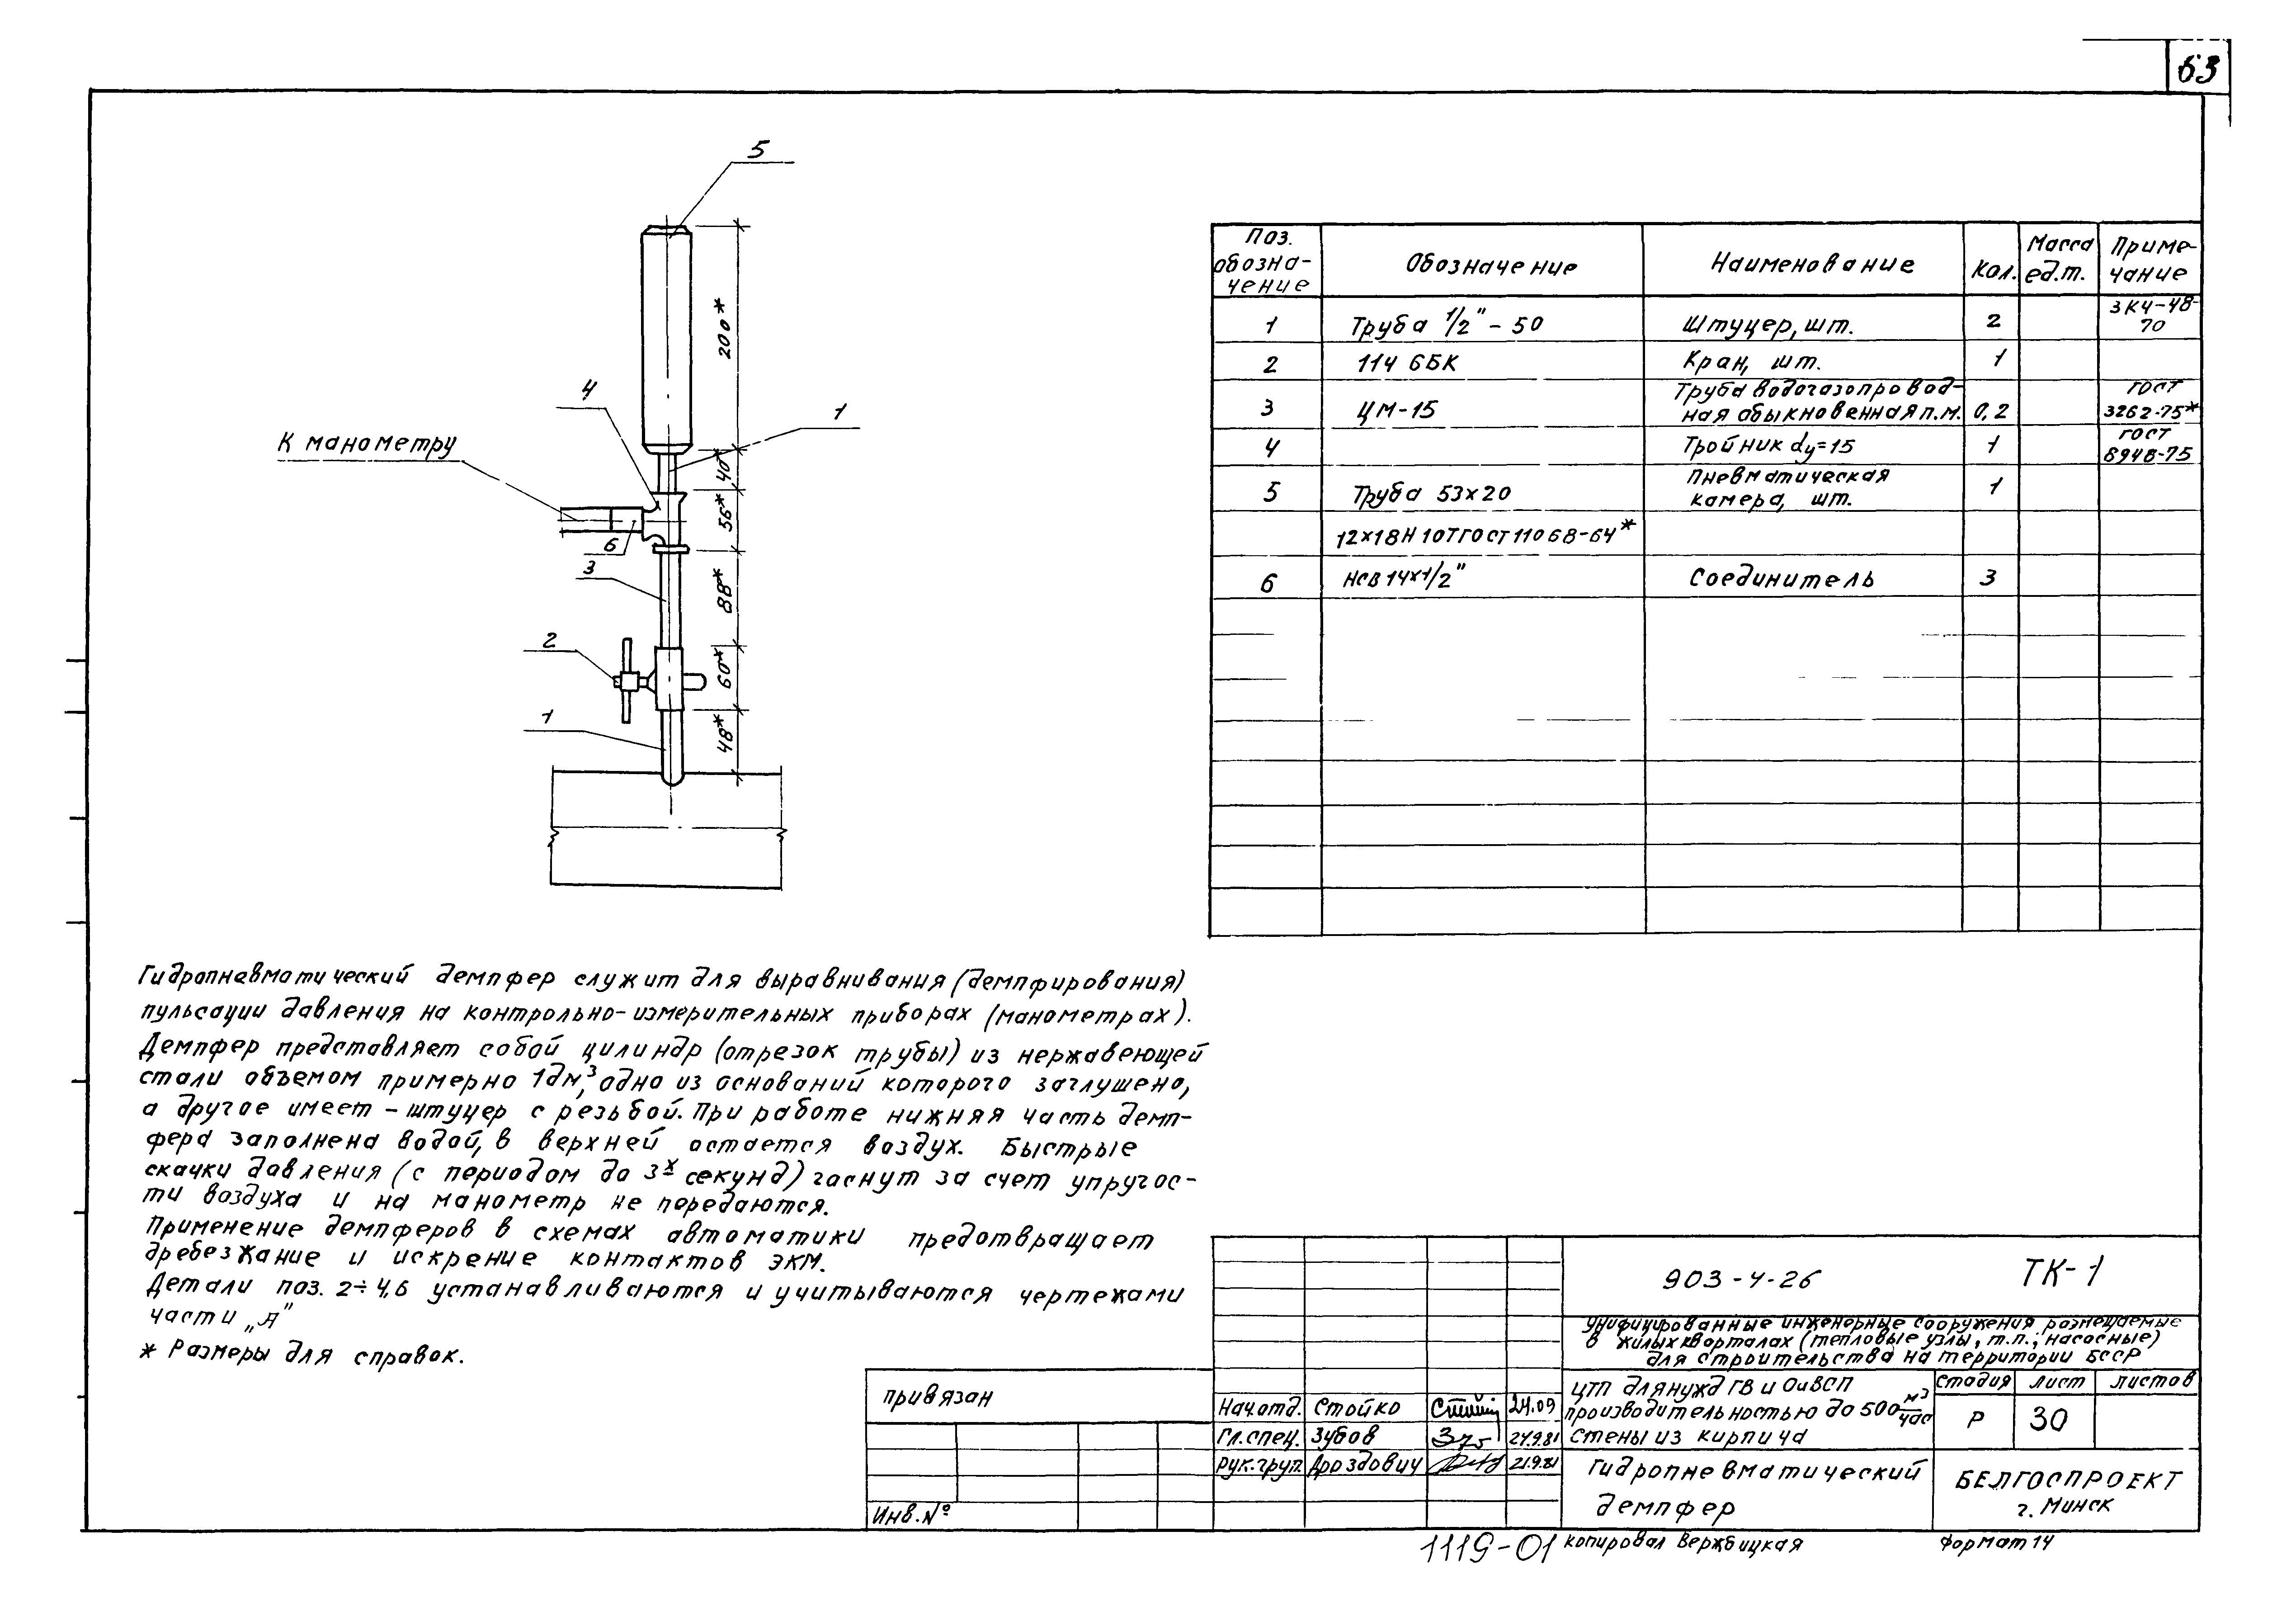 63
5
200*
4
1
К манометру
40*
56*
6
3
88*
2
60*
1
48*
Поз. обозна-чение Обозначение Наименование Кол. Масса ед.т. Приме-чание
1 Труба 1/2" - 50 Штуцер, шт. 2 3К4-48-70
2 11ч 6БК Кран, шт. 1
3 ЦМ-15 Труба водогазопровод-ная обыкновенная п.м. 0,2 ГОСТ 3262-75*
4 Тройник dу=15 1 ГОСТ 8948-75
5 Труба 53х20 Пневматическая камера, шт. 1
12х18Н10Т ГОСТ 11068-64*
6 НСВ 14х1/2" Соединитель 3
Гидропневматический демпфер служит для выравнивания (демпфирования)
пульсации давления на контрольно-измерительных приборах (манометрах).
Демпфер представляет собой цилиндр (отрезок трубы) из нержавеющей
стали объемом примерно 1дм³, одно из оснований которого заглушено,
а другое имеет - штуцер с резьбой. При работе нижняя часть демп-
фера заполнена водой, в верхней остается воздух. Быстрые
скачки давления (с периодом до 3х секунд) гаснут за счет упругос-
ти воздуха и на манометр не передаются.
Применение демпферов в схемах автоматики предотвращает
дребезжание и искрение контактов ЭКМ.
Детали поз. 2÷4,6 устанавливаются и учитываются чертежами
части „А"
* Размеры для справок.
привязан
Инв.№
903-4-26 ТК-1
унифицированные инженерные сооружения размещаемые
в жилых кварталах (тепловые узлы, т.п.; насосные)
для строительства на территории БССР
Нач.отд. Стойко 24.09
Гл.спец. Зубов 24.9.81
Рук.груп. Дроздович 21.9.81
ЦТП для нужд ГВ и ОиВСП
производительностью до 500 м³/час
стены из кирпича
стадия лист листов
Р 30
Гидропневматический
демпфер
БЕЛГОСПРОЕКТ
г. Минск
1119-01 копировал Вержбицкая формат 14